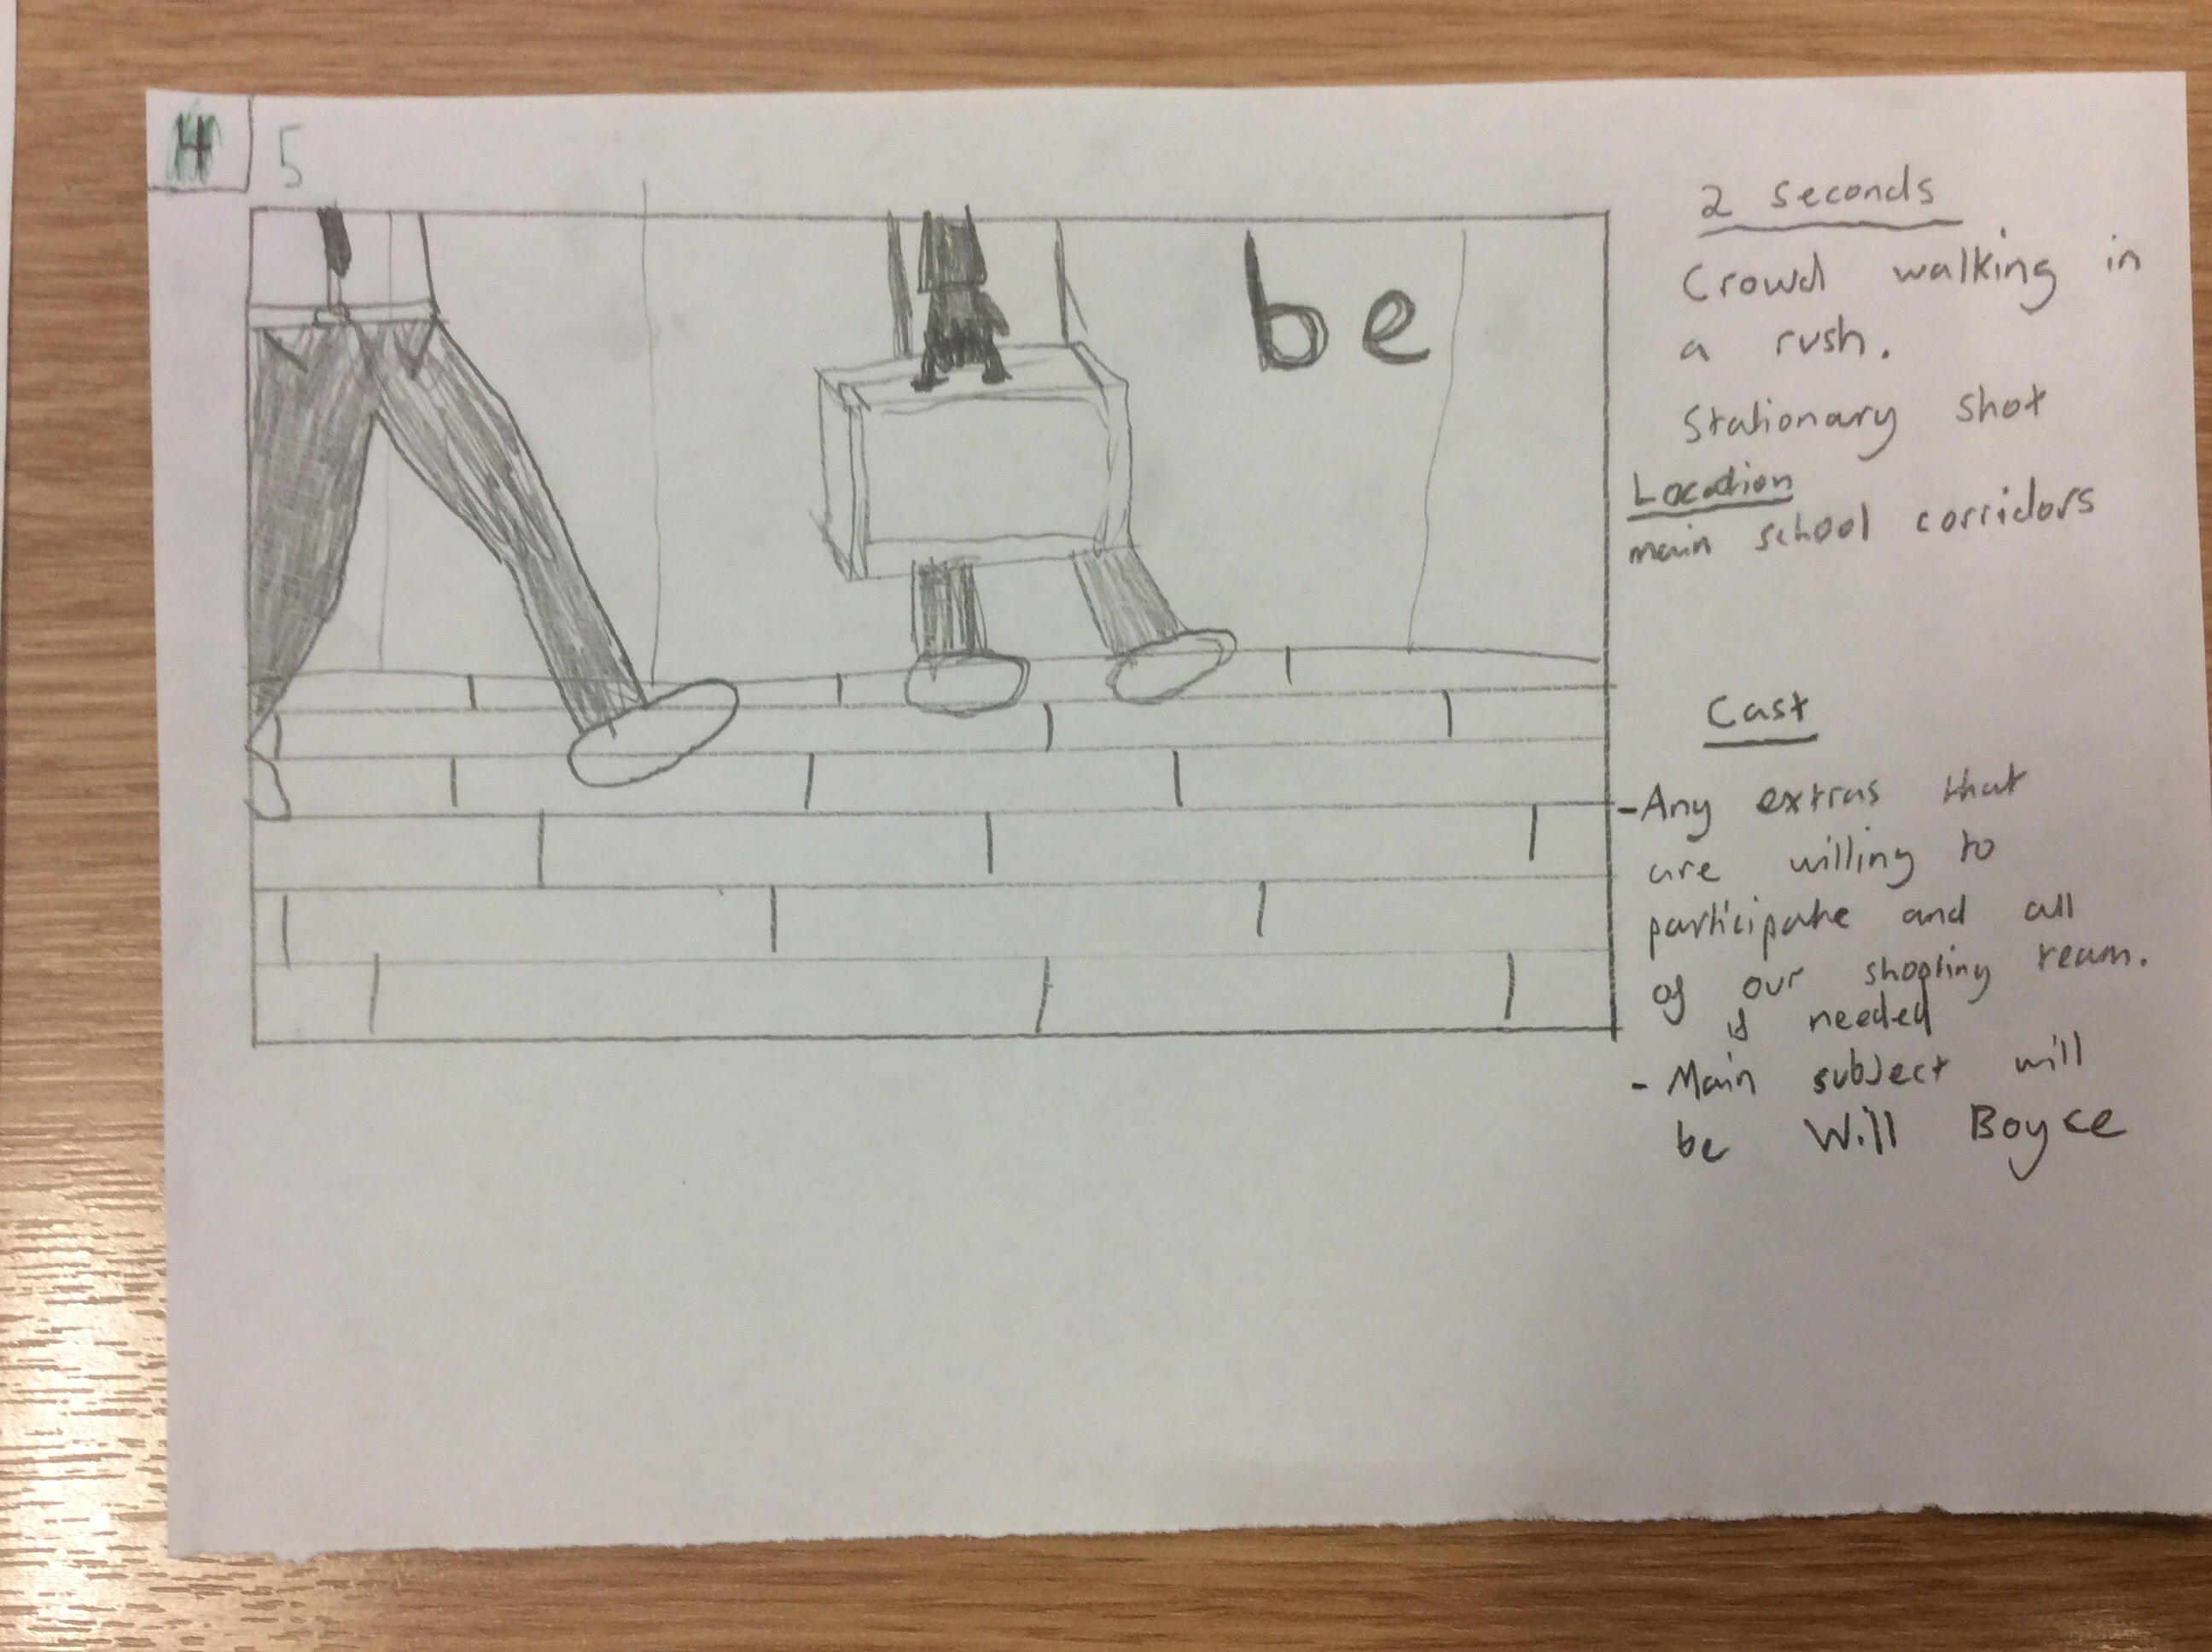 4
5
be
2 seconds
Crowd walking in
a rush.
Stationary shot
Location
main school corridors
Cast
- Any extras that
are willing to
participate and all
of our shooting team.
is needed
- Main subject will
be Will Boyce